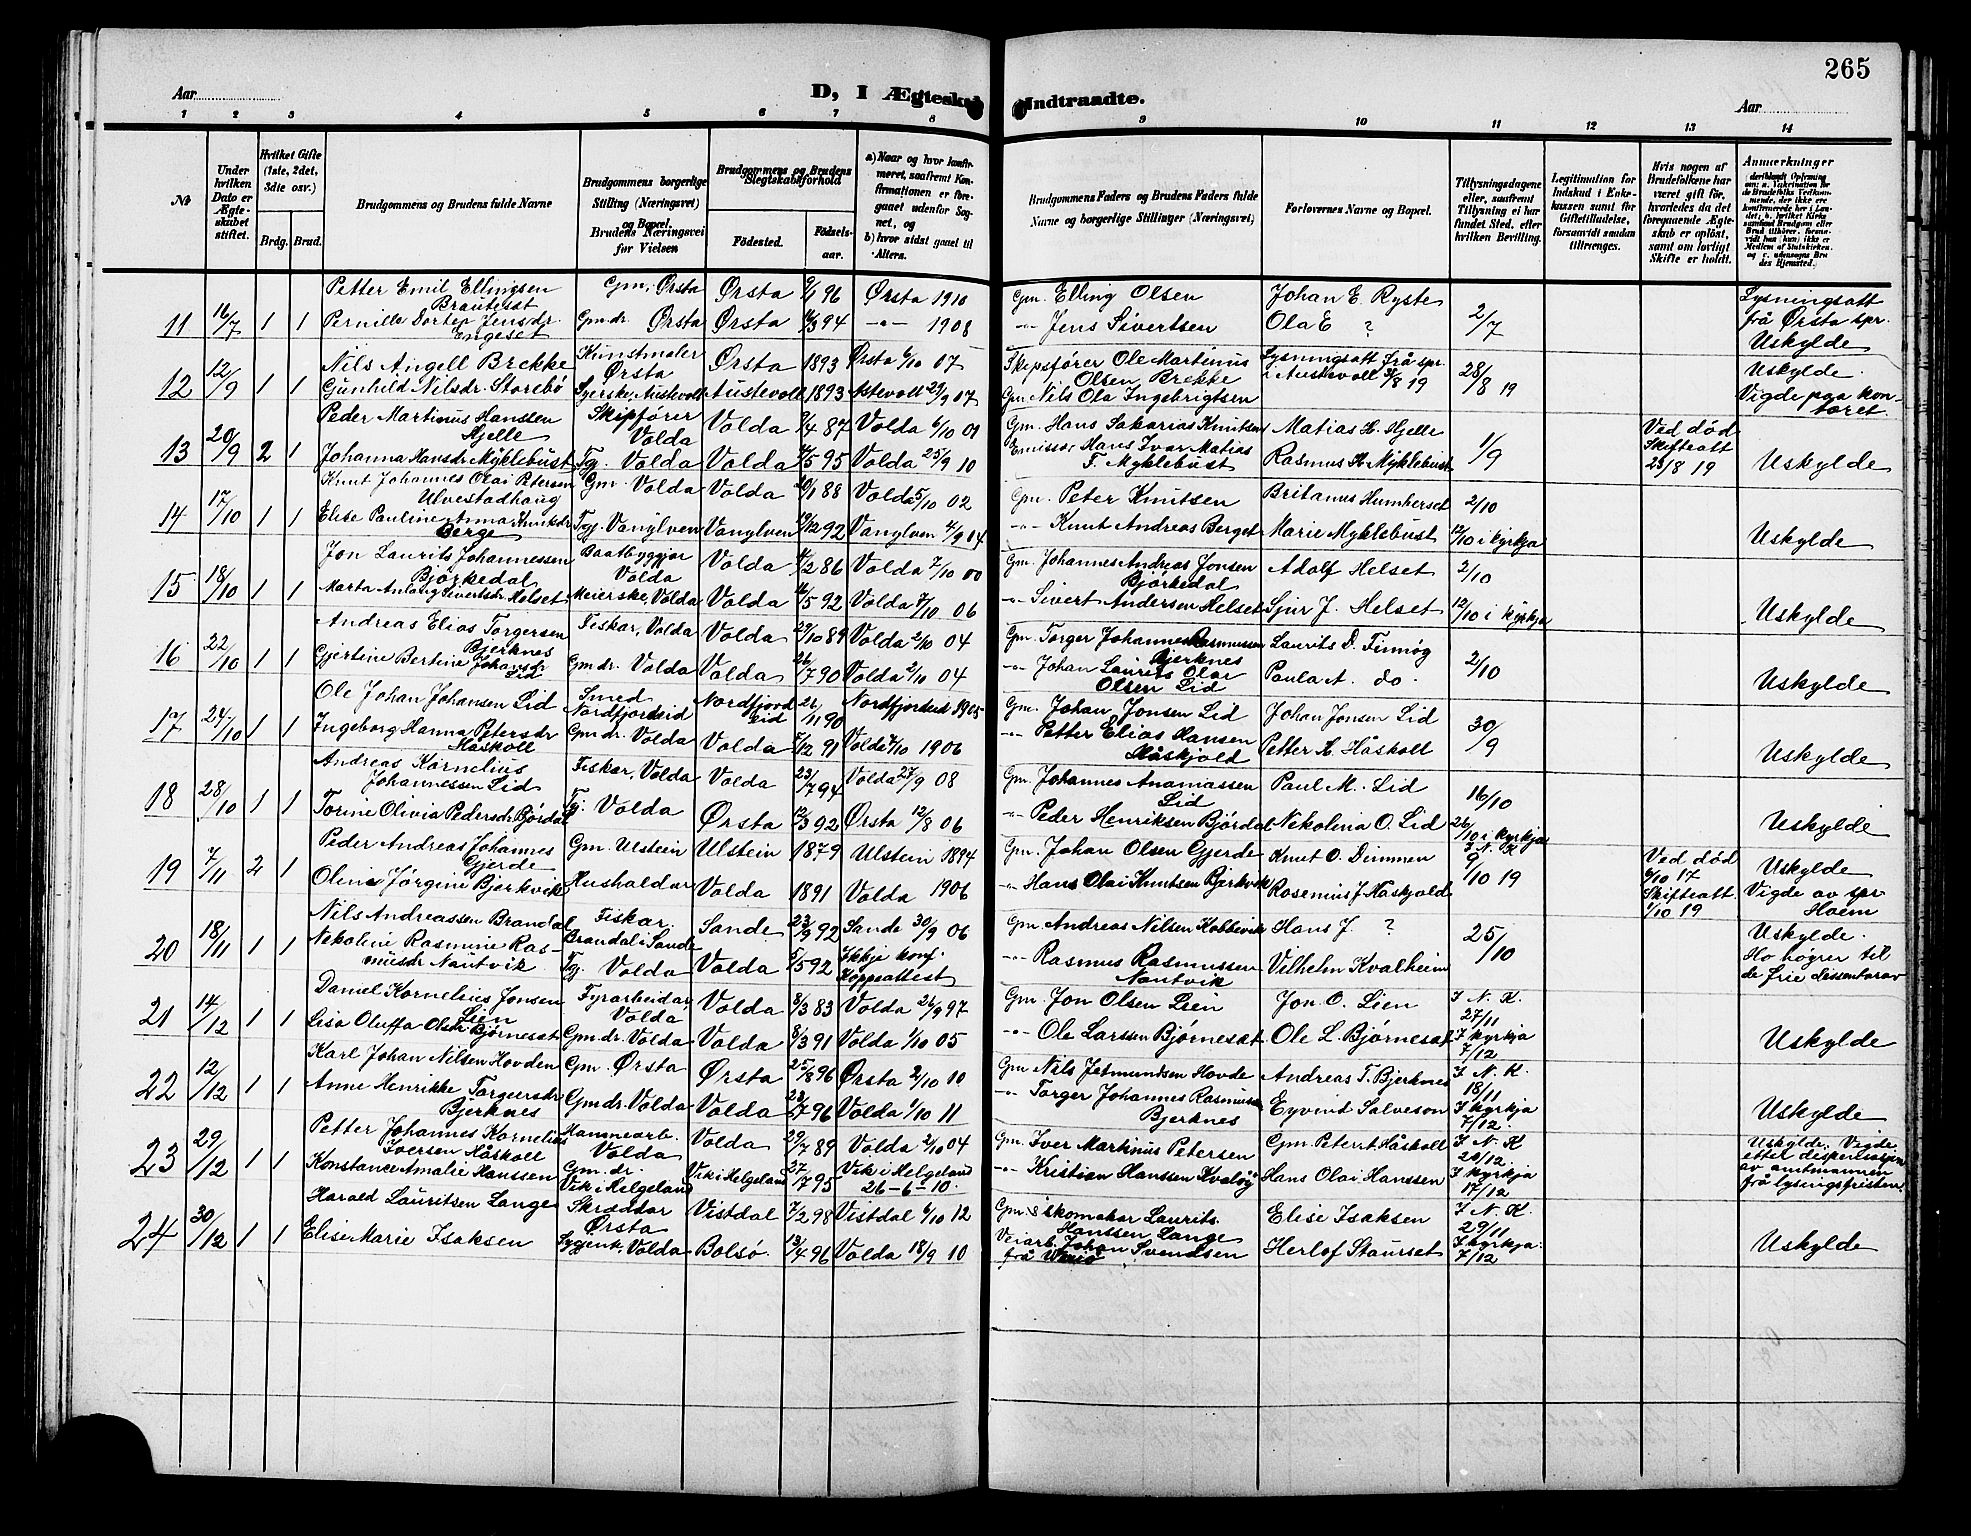 265
Aar
D, I Ægteskab Indtraadte.
Aar
1 2 3 4 5 6 7 8 9 10 11 12 13 14
No
Under hvilken Dato er Ægteskabet stiftet.
Hvilket Gifte (1ste, 2det, 3die osv.)
Brdg. Brud.
Brudgommens og Brudens fulde Navne
Brudgommens borgerlige Stilling (Næringsvei) og Bopæl. Brudens Næringsvei før Vielsen
Brudgommens og Brudens Slegtskabsforhold
Fødested. Fødselsaar.
a) Naar og hvor konfirmeret, saafremt Konfirmationen er foregaaet udenfor Sognet, og b) hvor sidst gaaet til Alters.
Brudgommens Faders og Brudens Faders fulde Navne og borgerlige Stillinger (Næringsvei)
Forlovernes Navne og Bopæl.
Tillysningsdagene eller, saafremt Tillysning ei har fundet Sted, efter hvilken Bevilling.
Legitimation for Indskud i Enkekassen samt for Giftetilladelse, forsaavidt saadan tiltrænges.
Hvis nogen af Brudefolkene har været gift før, hvorledes da det foregaaende Ægteskab er opløst, samt om lovligt Skifte er holdt.
Petter Emil Ellingsen Gm, Ørsta Ørsta 96 Ørsta 1910 Gm. Elling Olsen Johan E. Ryste Lysningsatt
Brauteset
11 16/7 1 1 Pernille Dortea Jensdr. Gmdr. Ørsta Ørsta 94 -"- 1908 -"- Jens Sivertsen Ola E ? 2/7 frå Ørsta spr.
Engeset Uskylde
Nils Angell Brekke Kunstmaler Ørsta Ørsta 1893 Ørsta 6/10 07 Skipsfører Ole Martinus Olsen Brekke Lysningsatt frå spr. i Austevoll 31/8 19 Uskylde.
12 12/9 1 1 Gunhild Nilsdr. Storebø Syerske, Austevoll Austevoll 1893 Austevoll 29/9 07 Gm Nils Ola Ingebrigtsen 28/8 19 Vigde paa kontoret.
Peder Martinus Hanssen Hjelle Skipfører Volda Volda 87 Volda 6/10 01 Gm. Hans Sakarias Knutsen Matias H. Hjelle Ved død
13 20/9 2 1 Johanna Hansdr Myklebust Tg. Volda Volda 95 Volda 25/9 10 Emissær Hans Ivar Matias F. Myklebust Rasmus H. Myklebust 1/9 Skifteatt 23/8 19 Uskylde
Knut Johannes Olai Petersen Ulvestadhaug Gm. Volda Volda 20/1 88 Volda 5/10 02 Gm. Peter Knutsen Britanus Humberset 2/10
14 17/10 1 1 Elise Pauline Anna Knutsdr Berge Tgj. Vanylven Vanylven 19/12 92 Vanylven 4/9 04 -"- Knut Andreas Berget Marie Myklebust 12/10 i kyrkja Uskylde
Jon Laurits Johannessen Bjørkedal Baatbyggjar Volda Volda 86 Volda 7/10 00 Gm. Johannes Andreas Jonsen Bjørkedal Adolf Helset 2/10
15 18/10 1 1 Marta Anlaug Sivertsdr. Helset Meierske, Volda Volda 16/5 92 Volda 7/10 06 -"- Sivert Andersen Helset Sjur J. Helset 12/10 i kyrkja Uskylde
Andreas Elias Torgersen Bjerknes Fiskar, Volda Volda 29/10 89 Volda 2/10 04 Gm. Torger Johannes Rasmussen Bjerknes Laurits D. Finnøy
16 22/10 1 1 Gjertine Bertine Johansdr Lid Gmdr. Volda Volda 26/7 90 Volda 2/10 04 -"- Johan Laurits Olai Olsen Lid Paula A. do. 2/10 Uskylde
Ole Johan Johansen Lid Smed Nordfjordeid Nordfjordeid 11 90 Nordfjordeid 1905 Gm. Johan Jonsen Lid Johan Jonsen Lid
17 24/10 1 1 Ingeborg Hanna Petersdr Håskoll Gmdr. Volda Volda 7/12 91 Volda 7/10 1906 -"- Petter Elias Hansen Håskjold Petter A. Håskoll 30/9 Uskylde
Andreas Kornelius Johannessen Lid Fiskar, Volda Volda 23/7 94 Volda 27/9 08 Gm. Johannes Anamassen Lid Paul M. Lid 16/10
18 28/10 1 1 Torine Olivia Pedersdr Bjørdal Tj. Volda Ørsta 12/3 92 Ørsta 12/8 06 -"- Peder Henriksen Bjørdal Nekolina O. Lid 26/10 i kyrkja Uskylde
Peder Andreas Johannes Gjerde Gm. Ulstein Ulstein 1879 Ulstein 1894 Gm. Johan Olsen Gjerde Knut O. Dimmen I N. K. Ved død Uskylde
19 7/11 2 1 Oline Jørgine Bjerkvik Hushaldar Volda 1891 Volda 1906 -"- Hans Olai Knutsen Bjerkvik Rasmus J. Haskjold 9/10 19 6/10 17 Skifteatt 1/10 19 Vigde av spr Hoem
Nils Andreassen Brandal Fiskar. Brandal i Sande Sande 23/9 92 Sande 30/9 06 Gm Andreas Nilsen Kobbevik Hans J. ? Uskylde.
20 18/11 1 1 Nekoline Rasmine Rasmusdr Nautvik Tg. Volda Volda 92 Ikkje konf. Koppeattest -"- Rasmus Rasmussen Nautvik Vilhelm Kvalheim 25/10 Ho høyrer til de frie dessentarar
Daniel Kornelius Jonsen Lien Fyrarbeidar, Volda Volda 8/3 83 Volda 26/9 97 Gm. Jon Olsen Lien Jon O. Lien I N. K. 27/11
21 14/12 1 1 Lisa Oluffa Olsdr Bjørneset Gmdr. Volda Volda 8/3 91 Volda 1/10 05 -"- Ole Larssen Bjørneset Ole L. Bjørneset I kyrkja 7/12 Uskylde
Karl Johan Nilsen Hovden Gm. Ørsta Ørsta 25/8 96 Ørsta 2/10 10 Gm Nils Jetmundsen Hovde Andreas T. Bjerknes I N. K. 18/11
22 12/12 1 1 Anne Henrikke Torgersdr Bjerknes Gmdr. Volda Volda 96 Volda 1/10 11 -"- Torger Johannes Rasmussen Bjerknes Eyvind Salveson I kyrkja 7/12. Uskylde
Petter Johannes Kornelius Iversen Håskoll Hannearb. Volda Volda 29/7 89 Volda 2/10 04 Gm. Iver Martinus Petersen Gm. Peter A. Håskoll I N. K 20/12. Uskylde. Vigde etter dispensasjon
23 29/12 1 1 Konstance Amalie Hanssen Gm. dr. Vik i Helgeland Vik i Helgeland 27/7 95 Vik i Helgeland 26-6-10. -"- Kristian Hanssen Kvaløy Hans Olai Hanssen I kyrkja 17/12 av amtmannen frå lysingsfristen.
Harald Lauritsen Lange Skræddar Ørsta Vistdal 7/2 98 Vistdal 6/10 12 Gm. skomakar Laurits Hanssen Lange Elise Isaksen I N. K. 29/11
24 30/12 1 1 Elise Marie Isaksen Sygjent, Volda Bolsø. 13/4 96 Volda 18/9 10 Veiarb. Johan Svendsen frå Herlof Staurset I kyrkja: 7/12 Uskylde